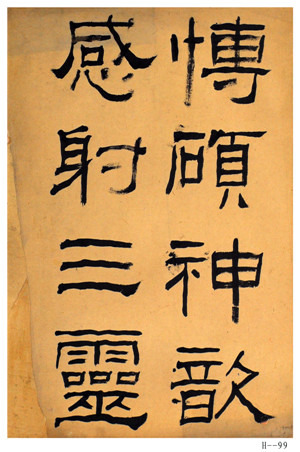 愽碩神歆
感射三靈
H--99